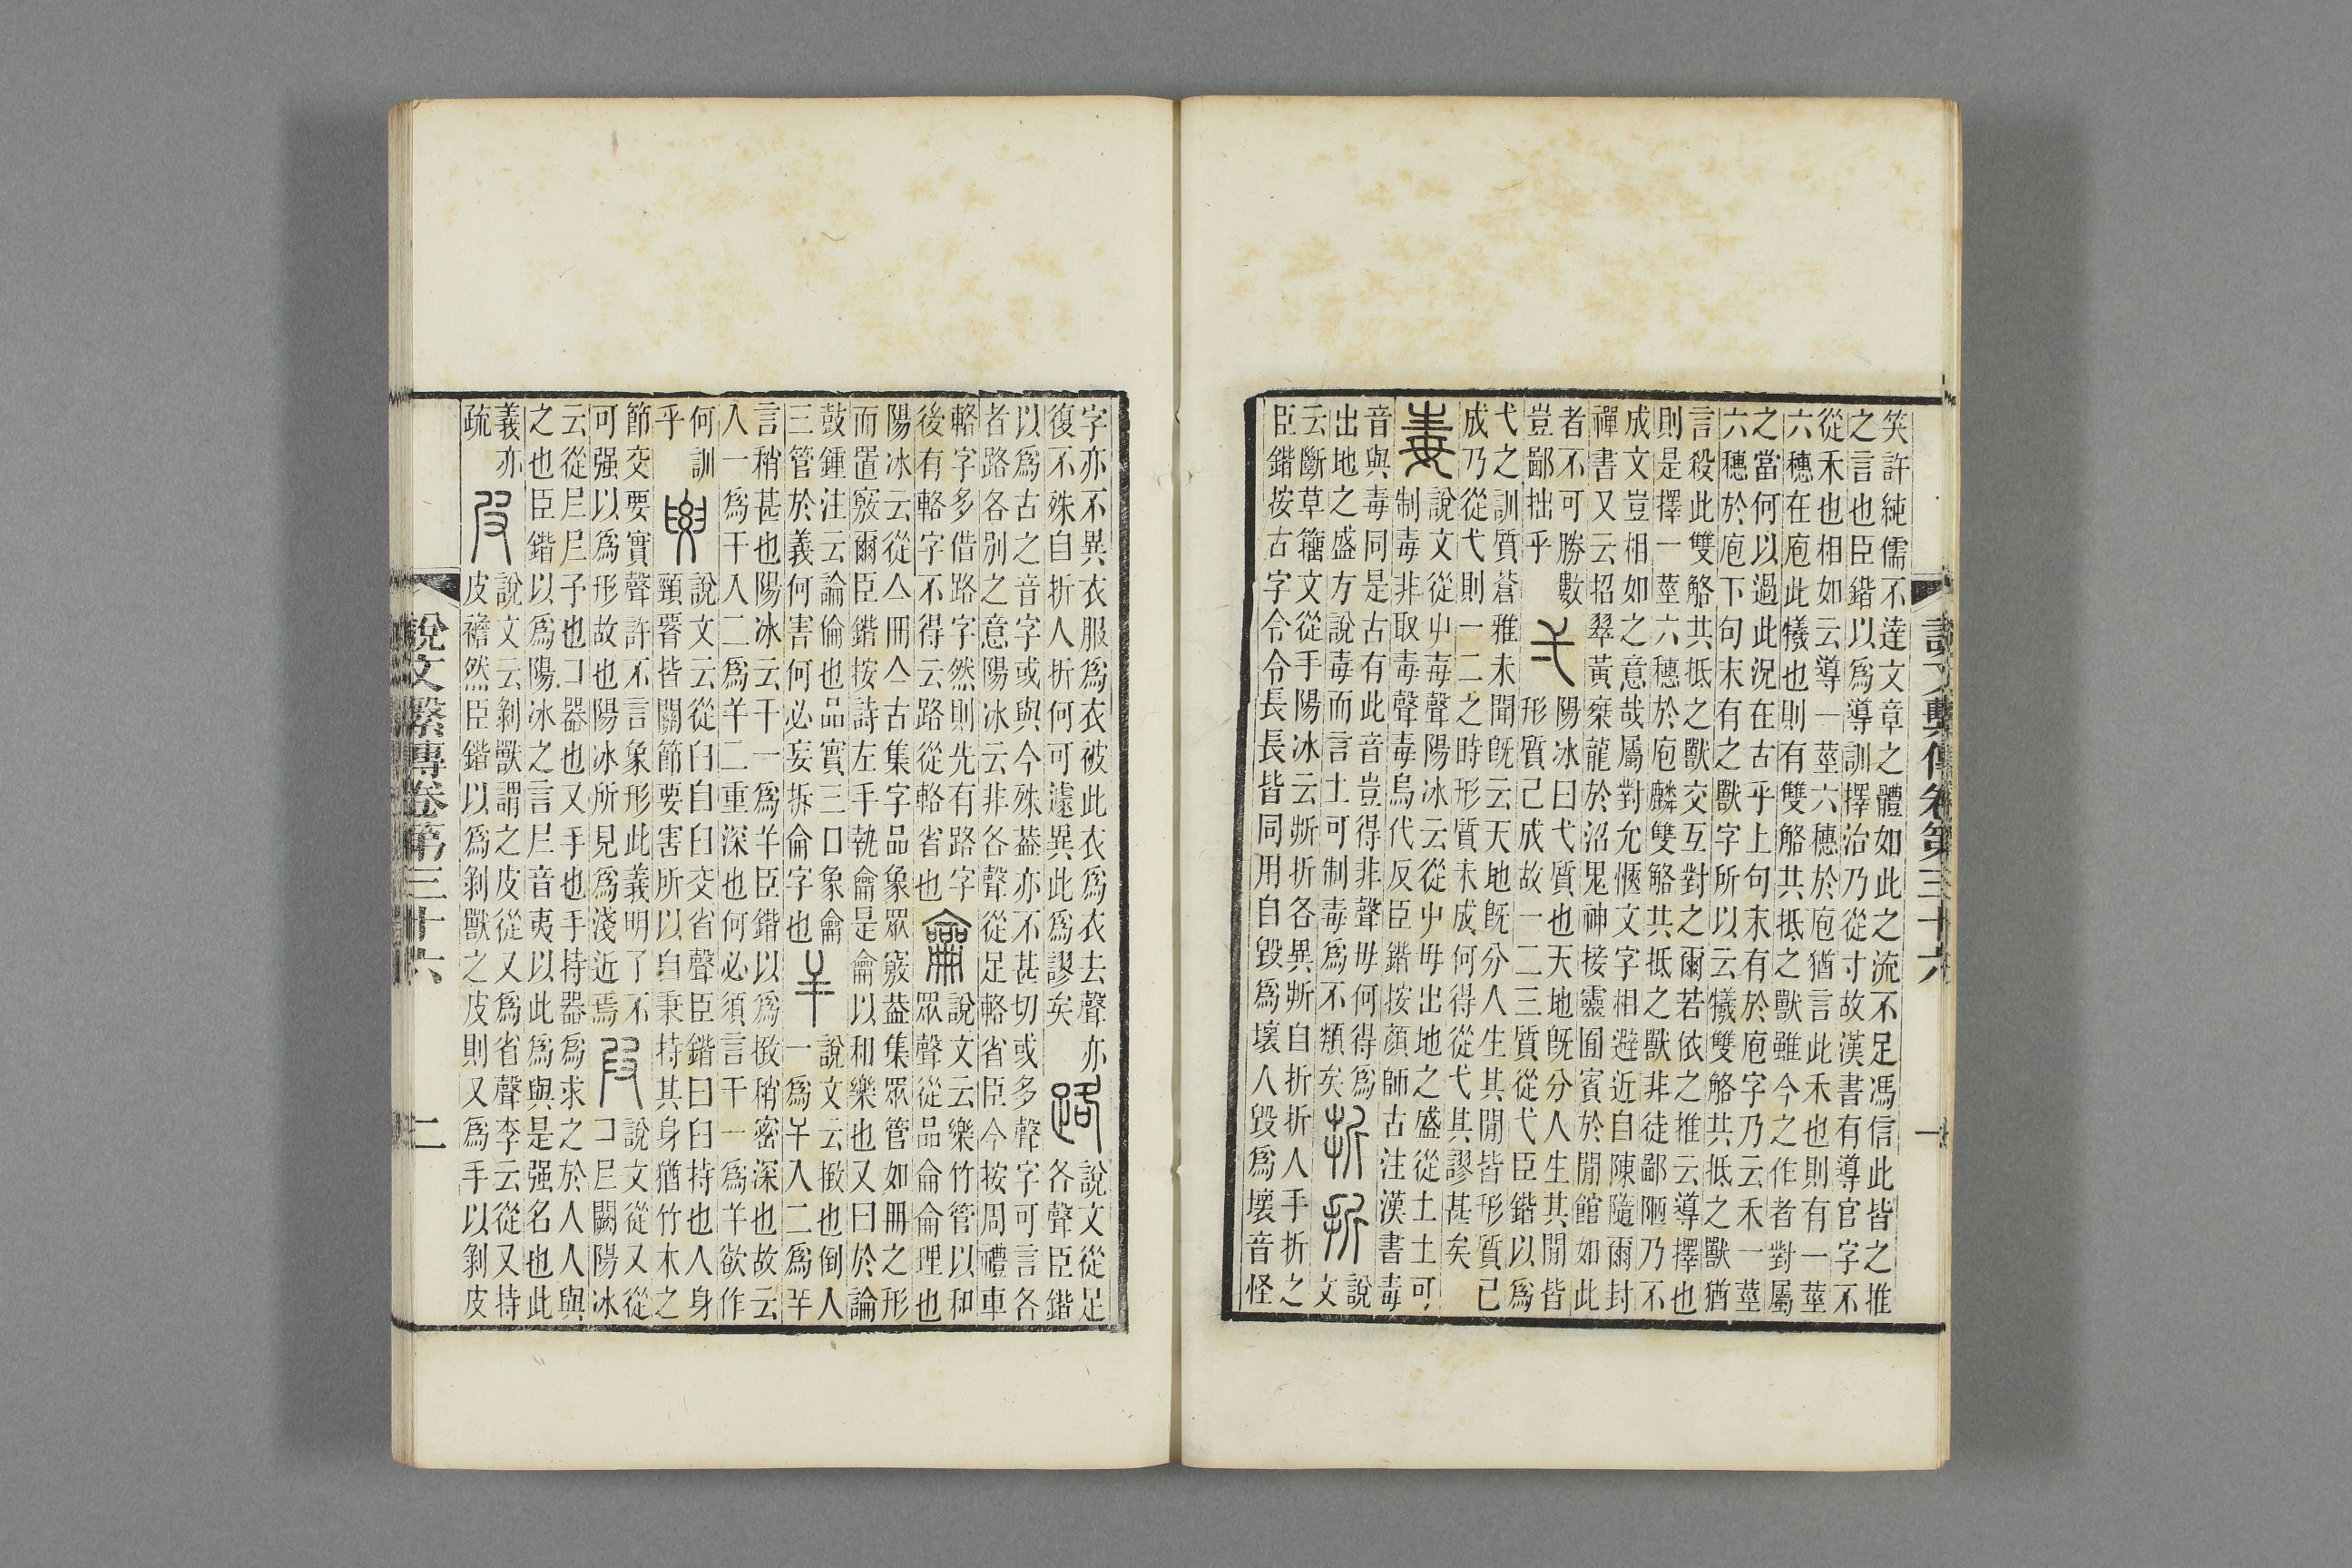 說文繫傳卷第三十六 一
笑許純儒不達文章之體如此之流不足馮信此皆之推
之言也臣鍇以爲導訓擇治乃從寸故漢書有導官字不
從禾也相如云導一莖六穗於庖猶言此禾也則有一莖
六穗在庖此犧也則有雙觡共抵之獸雖今之作者對屬
之當何以過此況在古乎上句末有於庖字乃云禾一莖
六穗於庖下句末有之獸字所以云犧雙觡共抵之獸猶
言殺此雙觡共抵之獸交互對之爾若依之推云導擇也
則是擇一莖六穗於庖麟雙觡共抵之獸非徒鄙陋乃不
成文豈相如之意哉屬對允愜文字相避近自陳隨爾封
禪書又云招翠黃椉龍於沼鬼神接靈圄賓於閒館如此
者不可勝數
豈鄙拙乎
弌
陽冰曰弋質也天地旣分人生其閒皆
形質己成故一二三質從弋臣鍇以爲
弋之訓質蒼雅未聞旣云天地旣分人生其閒皆形質己
成乃從弋則一二之時形質未成何得從弋其謬甚矣
毒
說文從屮毐聲陽冰云從屮毋出地之盛從土土可
制毒非取毒聲毒烏代反臣鍇按顏師古注漢書毒
音與毒同是古有此音豈得非聲毋何得爲
出地之盛方說毒而言土可制毒爲不類矣
折
折
說
文
云斷草籒文從手陽冰云斯折各異斯自折折人手折之
臣鍇按古字令令長長皆同用自毀爲壞人毀爲壞音怪
字亦不異衣服爲衣被此衣爲衣去聲亦
復不殊自折人折何可遽異此爲謬矣
路
說文從足
各聲臣鍇
以爲古之音字或與今殊葢亦不甚切或多聲字可言各
者路各别之意陽冰云非各聲從足輅省臣今按周禮車
輅字多借路字然則先有路字
後有輅字不得云路從輅省也
龠
說文云樂竹管以和
眾聲從品侖侖理也
陽冰云從亼冊亼古集字品象眾竅葢集眾管如冊之形
而置竅爾臣鍇按詩左手執龠是龠以和樂也又曰於論
鼓鍾注云論倫也品實三口象龠
三管於義何害何必妄拆侖字也
𢆉
說文云撳也倒人
一爲干入二爲𢆉
言稍甚也陽冰云干一爲𢆉臣鍇以爲撳稍密深也故云
入一爲干入二爲𢆉二重深也何必須言干一爲𢆉欲作
何訓
乎
要
說文云從臼自臼交省聲臣鍇曰臼持也人身
頸 皆關節要害所以自秉持其身猶竹木之
節交要實聲許不言象形此義明了不
可强以爲形故也陽冰所見爲淺近焉
叚
說文從又從
コ𡰣闕陽冰
云從𡰣𡰣予也コ器也又手也手持器爲求之於人人與
之也臣鍇以爲陽冰之言𡰣音夷以此爲與是强名也此
義亦
疏
皮
說文云剝獸謂之皮從又爲省聲李云從又持
皮襜然臣鍇以爲剝獸之皮則又爲手以剝皮
說文繫傳卷第三十六 二